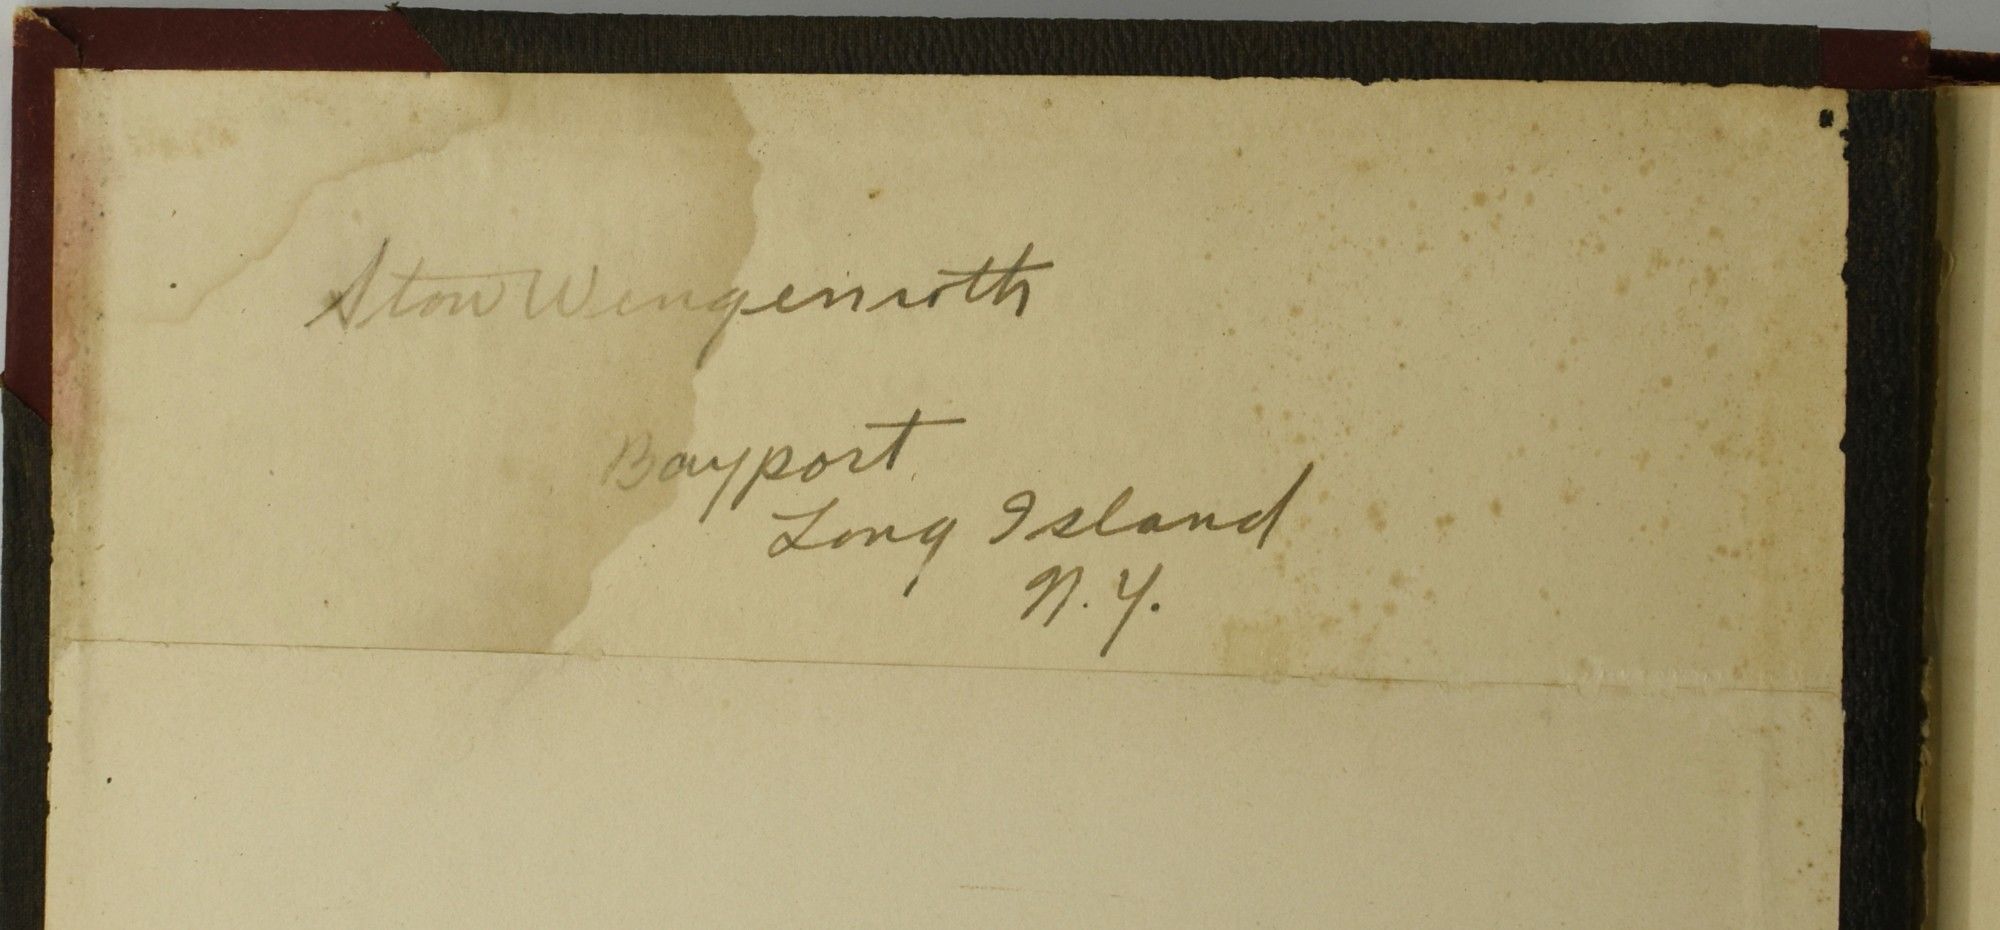 Stow Wengenroth
Bayport
Long Island
N.Y.